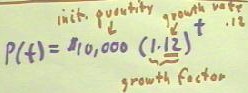 init. quantity growth rate
.12
P(t) = $10,000 (1.12)^t
growth factor